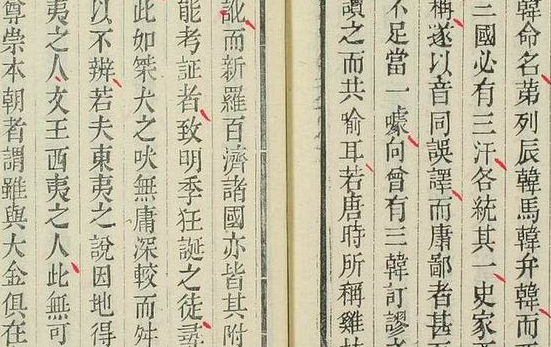 韓命名苐列辰韓馬韓弁韓而
三國必有三汗各統其一史家
稱遂以音同誤譯而庸鄙者甚
不足當一噱向曾有三韓訂謬
讀之而共喻耳若唐時所稱雞
訛而新羅百濟諸國亦皆其附
能考証者致明季狂誕之徒尋
此如桀犬之吠無庸深較而舛
以不辨若夫東夷之說因地得
夷之人文王西夷之人此無可
尊崇本朝者謂雖與大金俱在